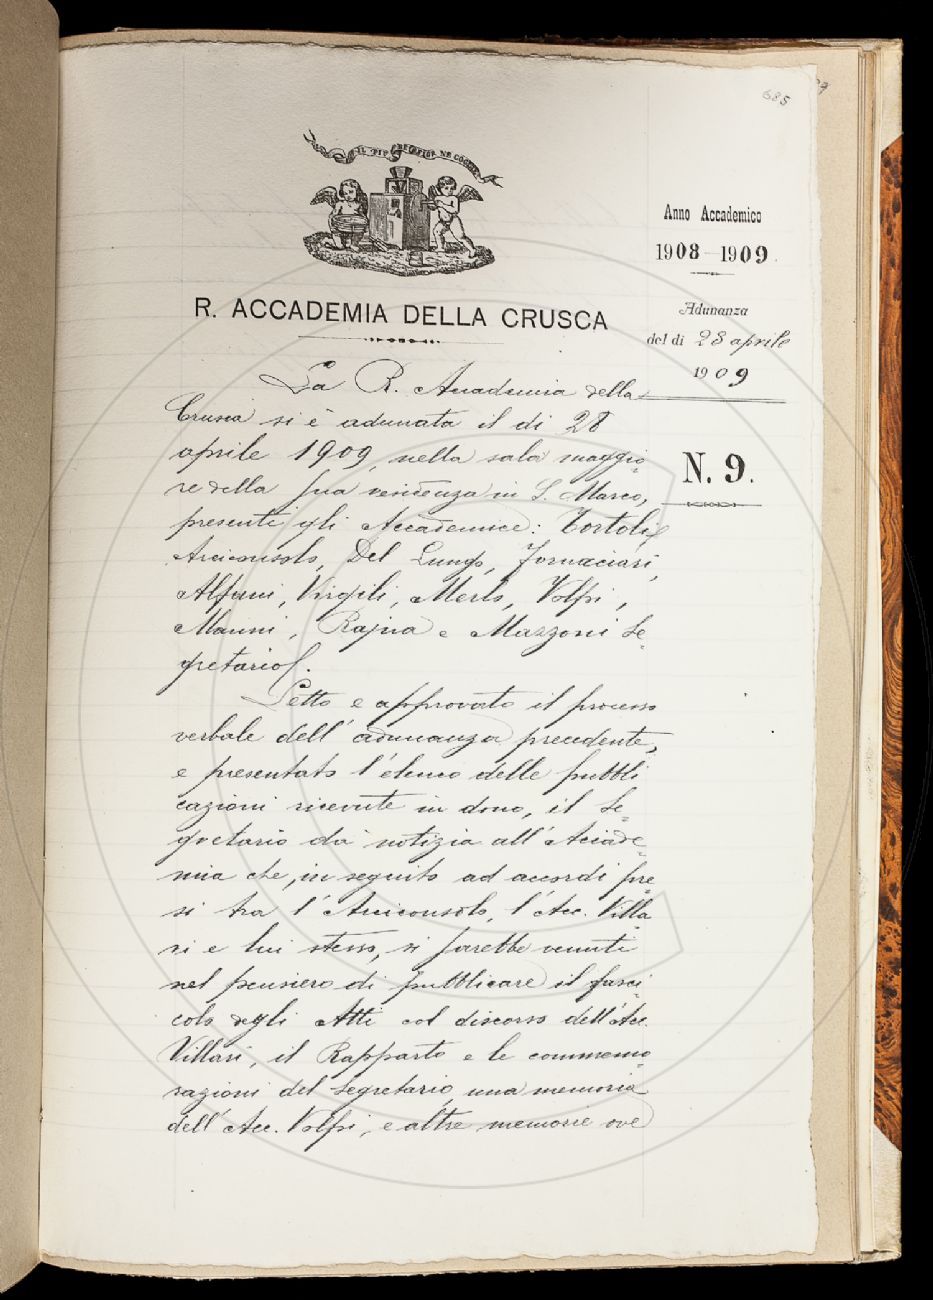 685
IL PIÙ BEL FIOR NE COGLIE
Anno Accademico
1908-1909.
R. ACCADEMIA DELLA CRUSCA
Adunanza
del dì 28 aprile
1909
La R. Accademia della
Crusca si è adunata il dì 28
aprile 1909, nella sala maggio-
re della sua residenza in S. Marco,
N. 9.
presenti gli Accademici: Tortoli
Arciconsolo, Del Lungo, Fornaciari,
Alfani, Virgili, Merlo, Volpi,
Mazzoni Se-
gretario.
Letto e approvato il processo
verbale dell'adunanza precedente,
e presentato l'elenco delle pubbli
cazioni ricevute in dono, il Se-
gretario dà notizia all'Accade-
mia che, in seguito ad accordi pre-
si tra l'Arciconsolo, l'Acc. Villa-
ri e lui stesso, si sarebbe venuti
nel pensiero di pubblicare il fasci-
colo degli Atti col discorso dell'Acc.
Villari, il Rapporto e le commemo-
razioni del Segretario, una memoria
dell'Acc. Volpi, e altre memorie ove